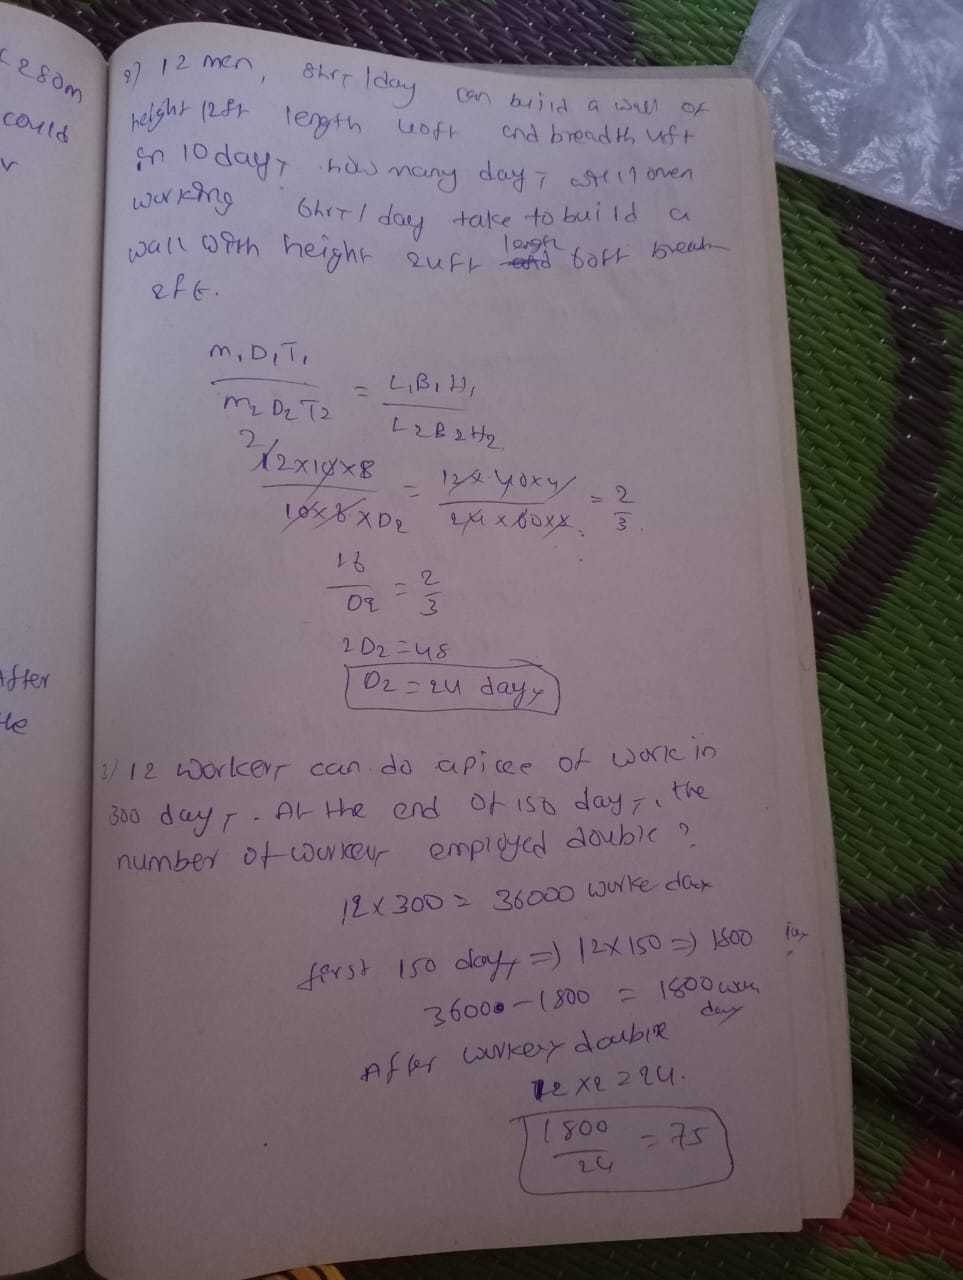 280m
could
r
After
the
2) 12 men, 8hrs/day can build a wall of
height 12ft length 40ft and breadth 4ft
in 10 days how many days will
working 6hrs/day take to build a
wall with height 24ft length 60ft breath
2ft.
M1D1T1 / M2D2T2 = L1B1H1 / L2B2H2
12×10×8 / 10×6×D2 = 12×40×4 / 24×60×2 = 2/3.
16 / D2 = 2/3
2D2=48
D2=24 days
3) 12 workers can do apicee of work in
300 days. At the end of 150 days, the
number of workers employed double?
12×300 = 36000 worke days
first 150 days => 12×150 => 1800
36000-1800 = 1800 work
days
After workers double
12×2=24.
1800 / 24 = 75